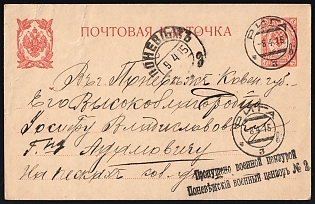 ПОЧТОВАЯ КАРТОЧКА
РИГА
8 4 15
ПОНЕВѢЖЪ
9 4 15
Въ г. Поневѣжъ Ковен. губ.
Его Высокоблагородію
Іосифу Владиславовичу
Г-ну Адамовичу
РИГА
8 4 15
Пропущено военной цензурой
Поневѣжскій военный цензоръ № 2.